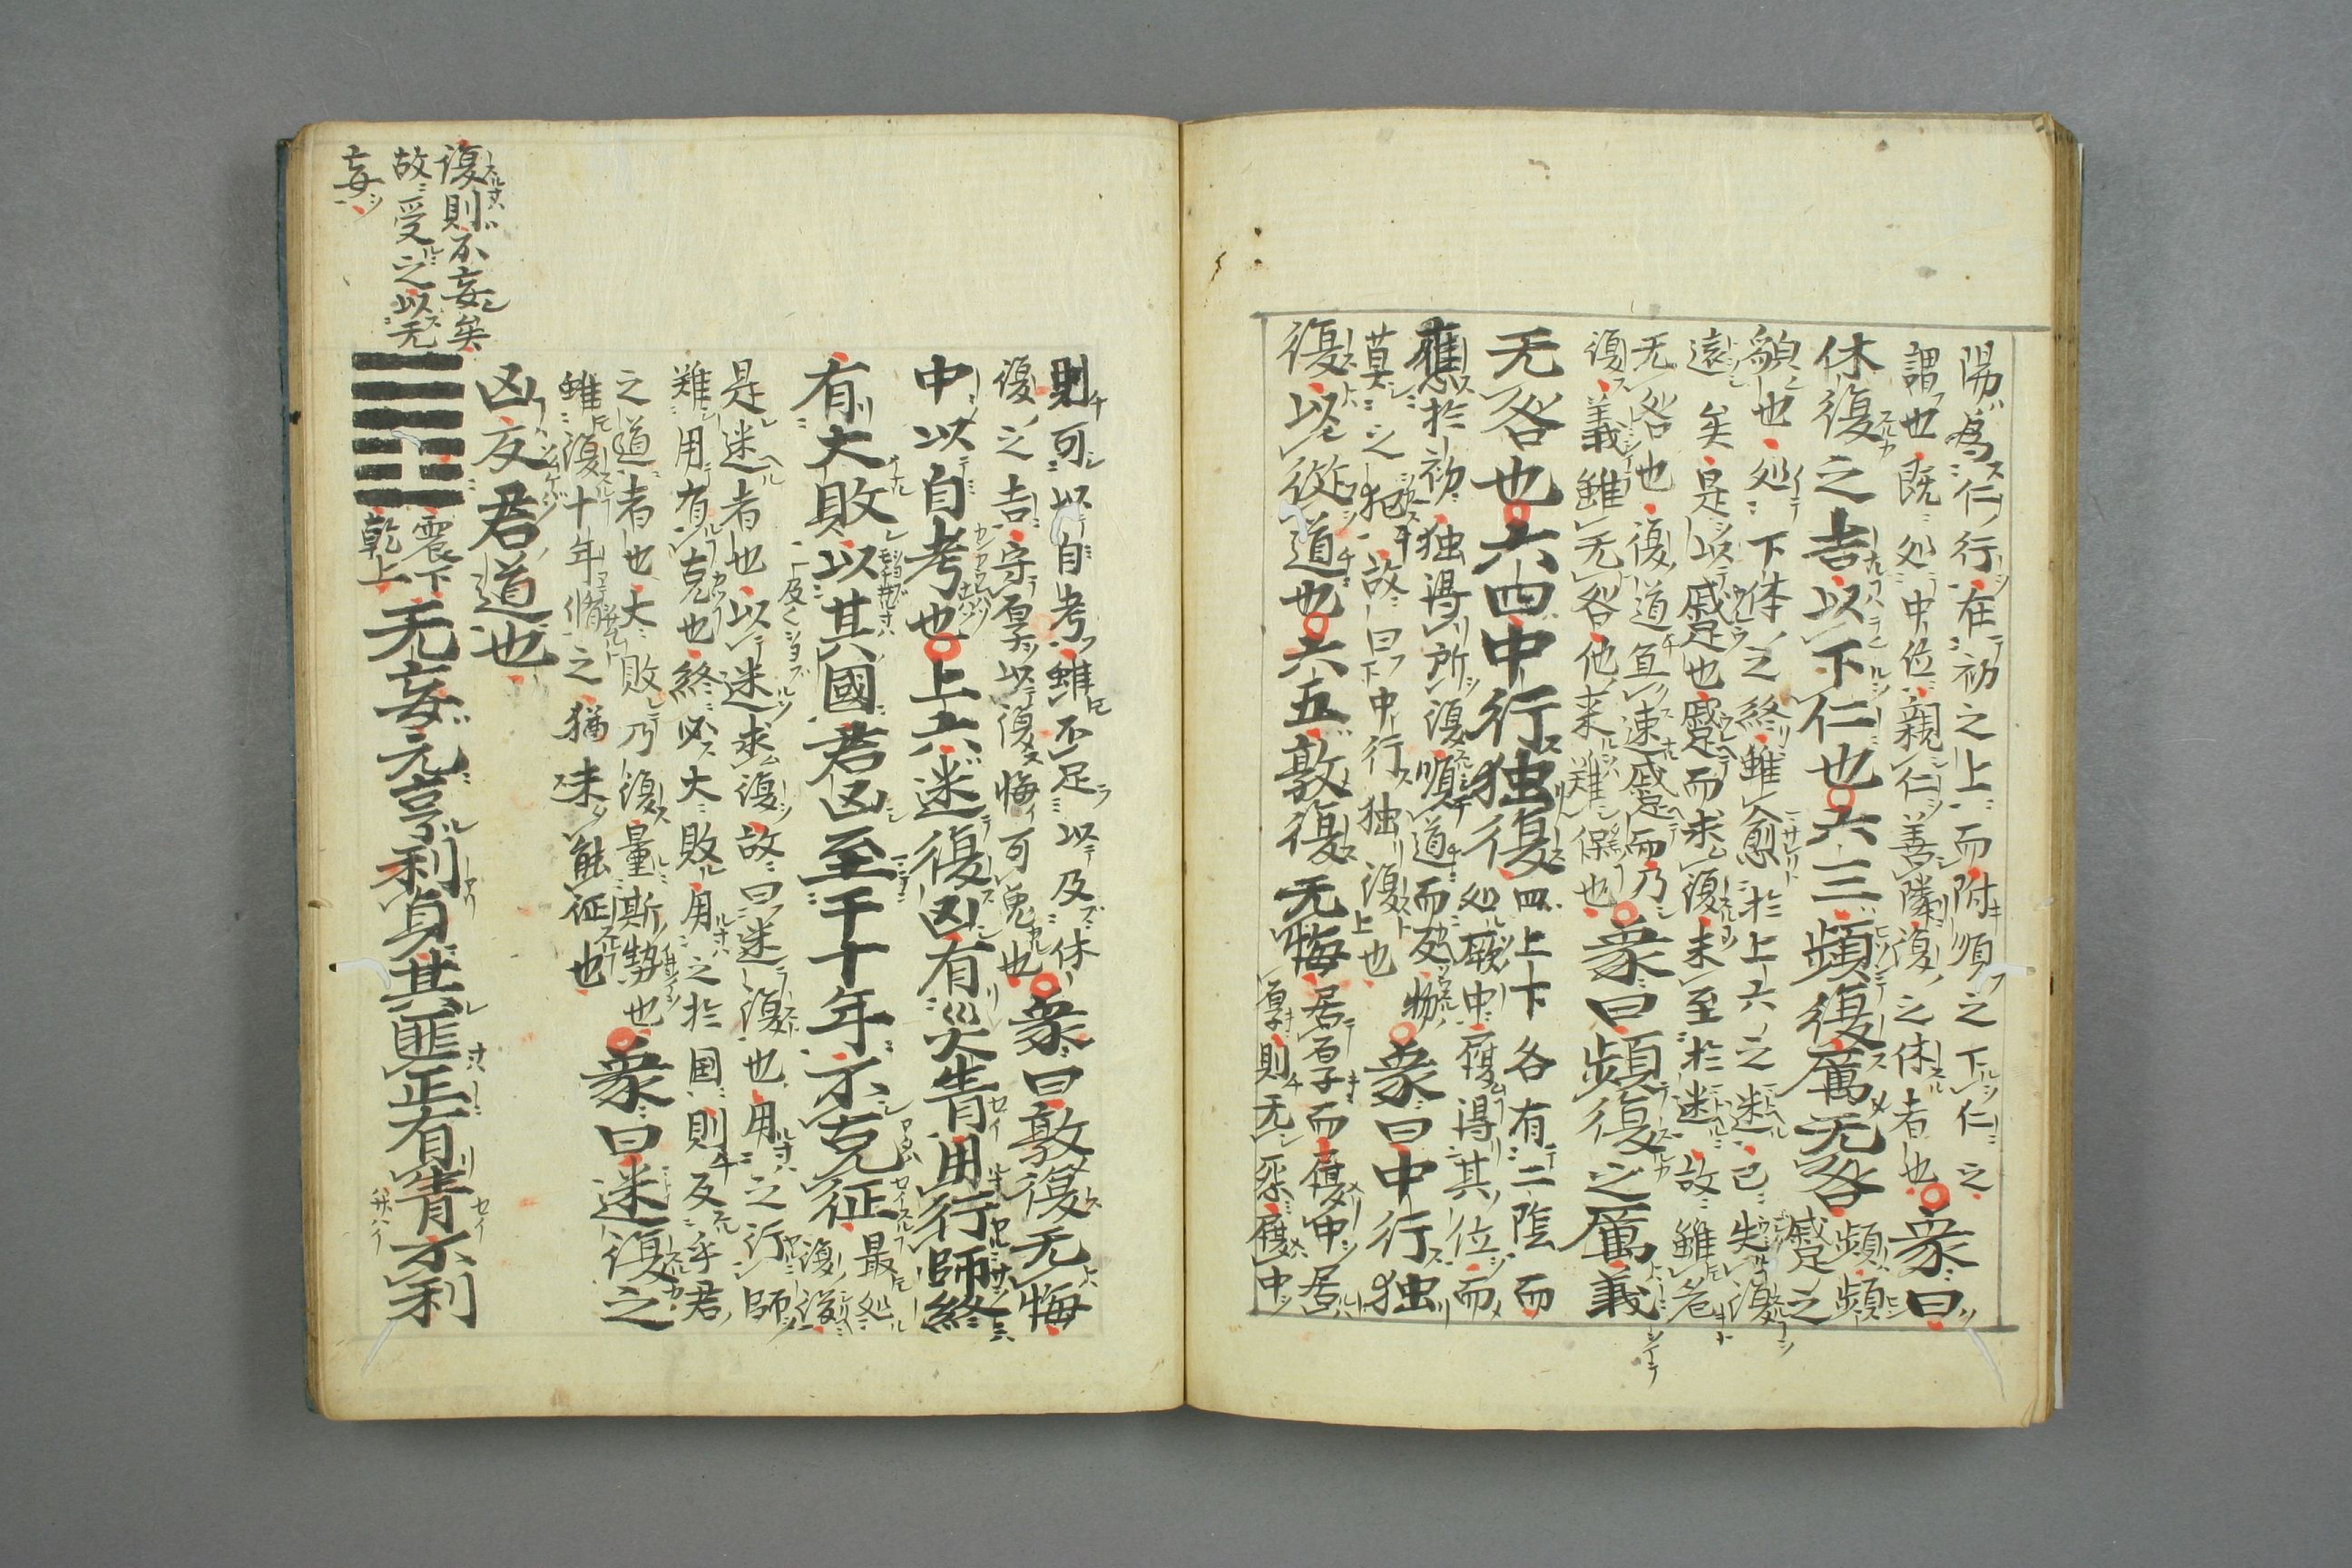 陽為仁行在初之上而附順之下仁之
謂也既処中位親仁善隣復之休者也○象曰
休復之吉以下仁也○六三頻復厲无咎頻頻
蹙之
㒵也処下体之終雖愈於上六之迷已失復
遠矣是以蹙也蹙而求復未至於迷故雖危
无咎也復道宜速蹙而乃
復義雖无咎他来難保也○象曰頻復之厲義
无咎也○六四中行独復四上下各有二陰而
処厥中履得其位而
應於初独得所復順道而反物
莫之犯故曰中行独復也○象曰中行独
復以從道也○六五敦復无悔居厚而履中居
厚則无怨履中
則可以自考雖不足以及休
復之吉守厚以復悔可免也○象曰敦復无悔
中以自考也○上六迷復凶有災眚用行師終
有大敗以其國君凶至于十年不克征最処
復後
是迷者也以迷求復故曰迷復也用之行師
難用有克也終必大敗用之於国則反乎君
之道者也大敗乃復量斯勢也
雖復十年脩之猶未能征也○象曰迷復之
凶反君道也
復則不妄矣
故受之以无
妄
震下
乾上
无妄元亨利貞其匪正有眚不利